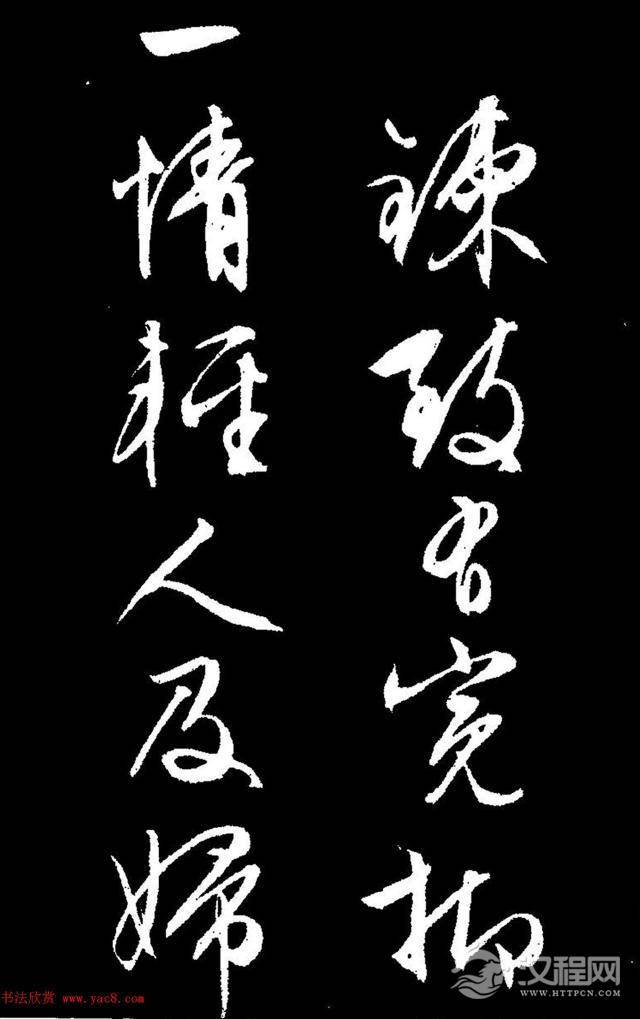 鍊致有寃抑
一情輕人及婦
书法欣赏 www.yac8.com
汉程网
WWW.HTTPCN.COM